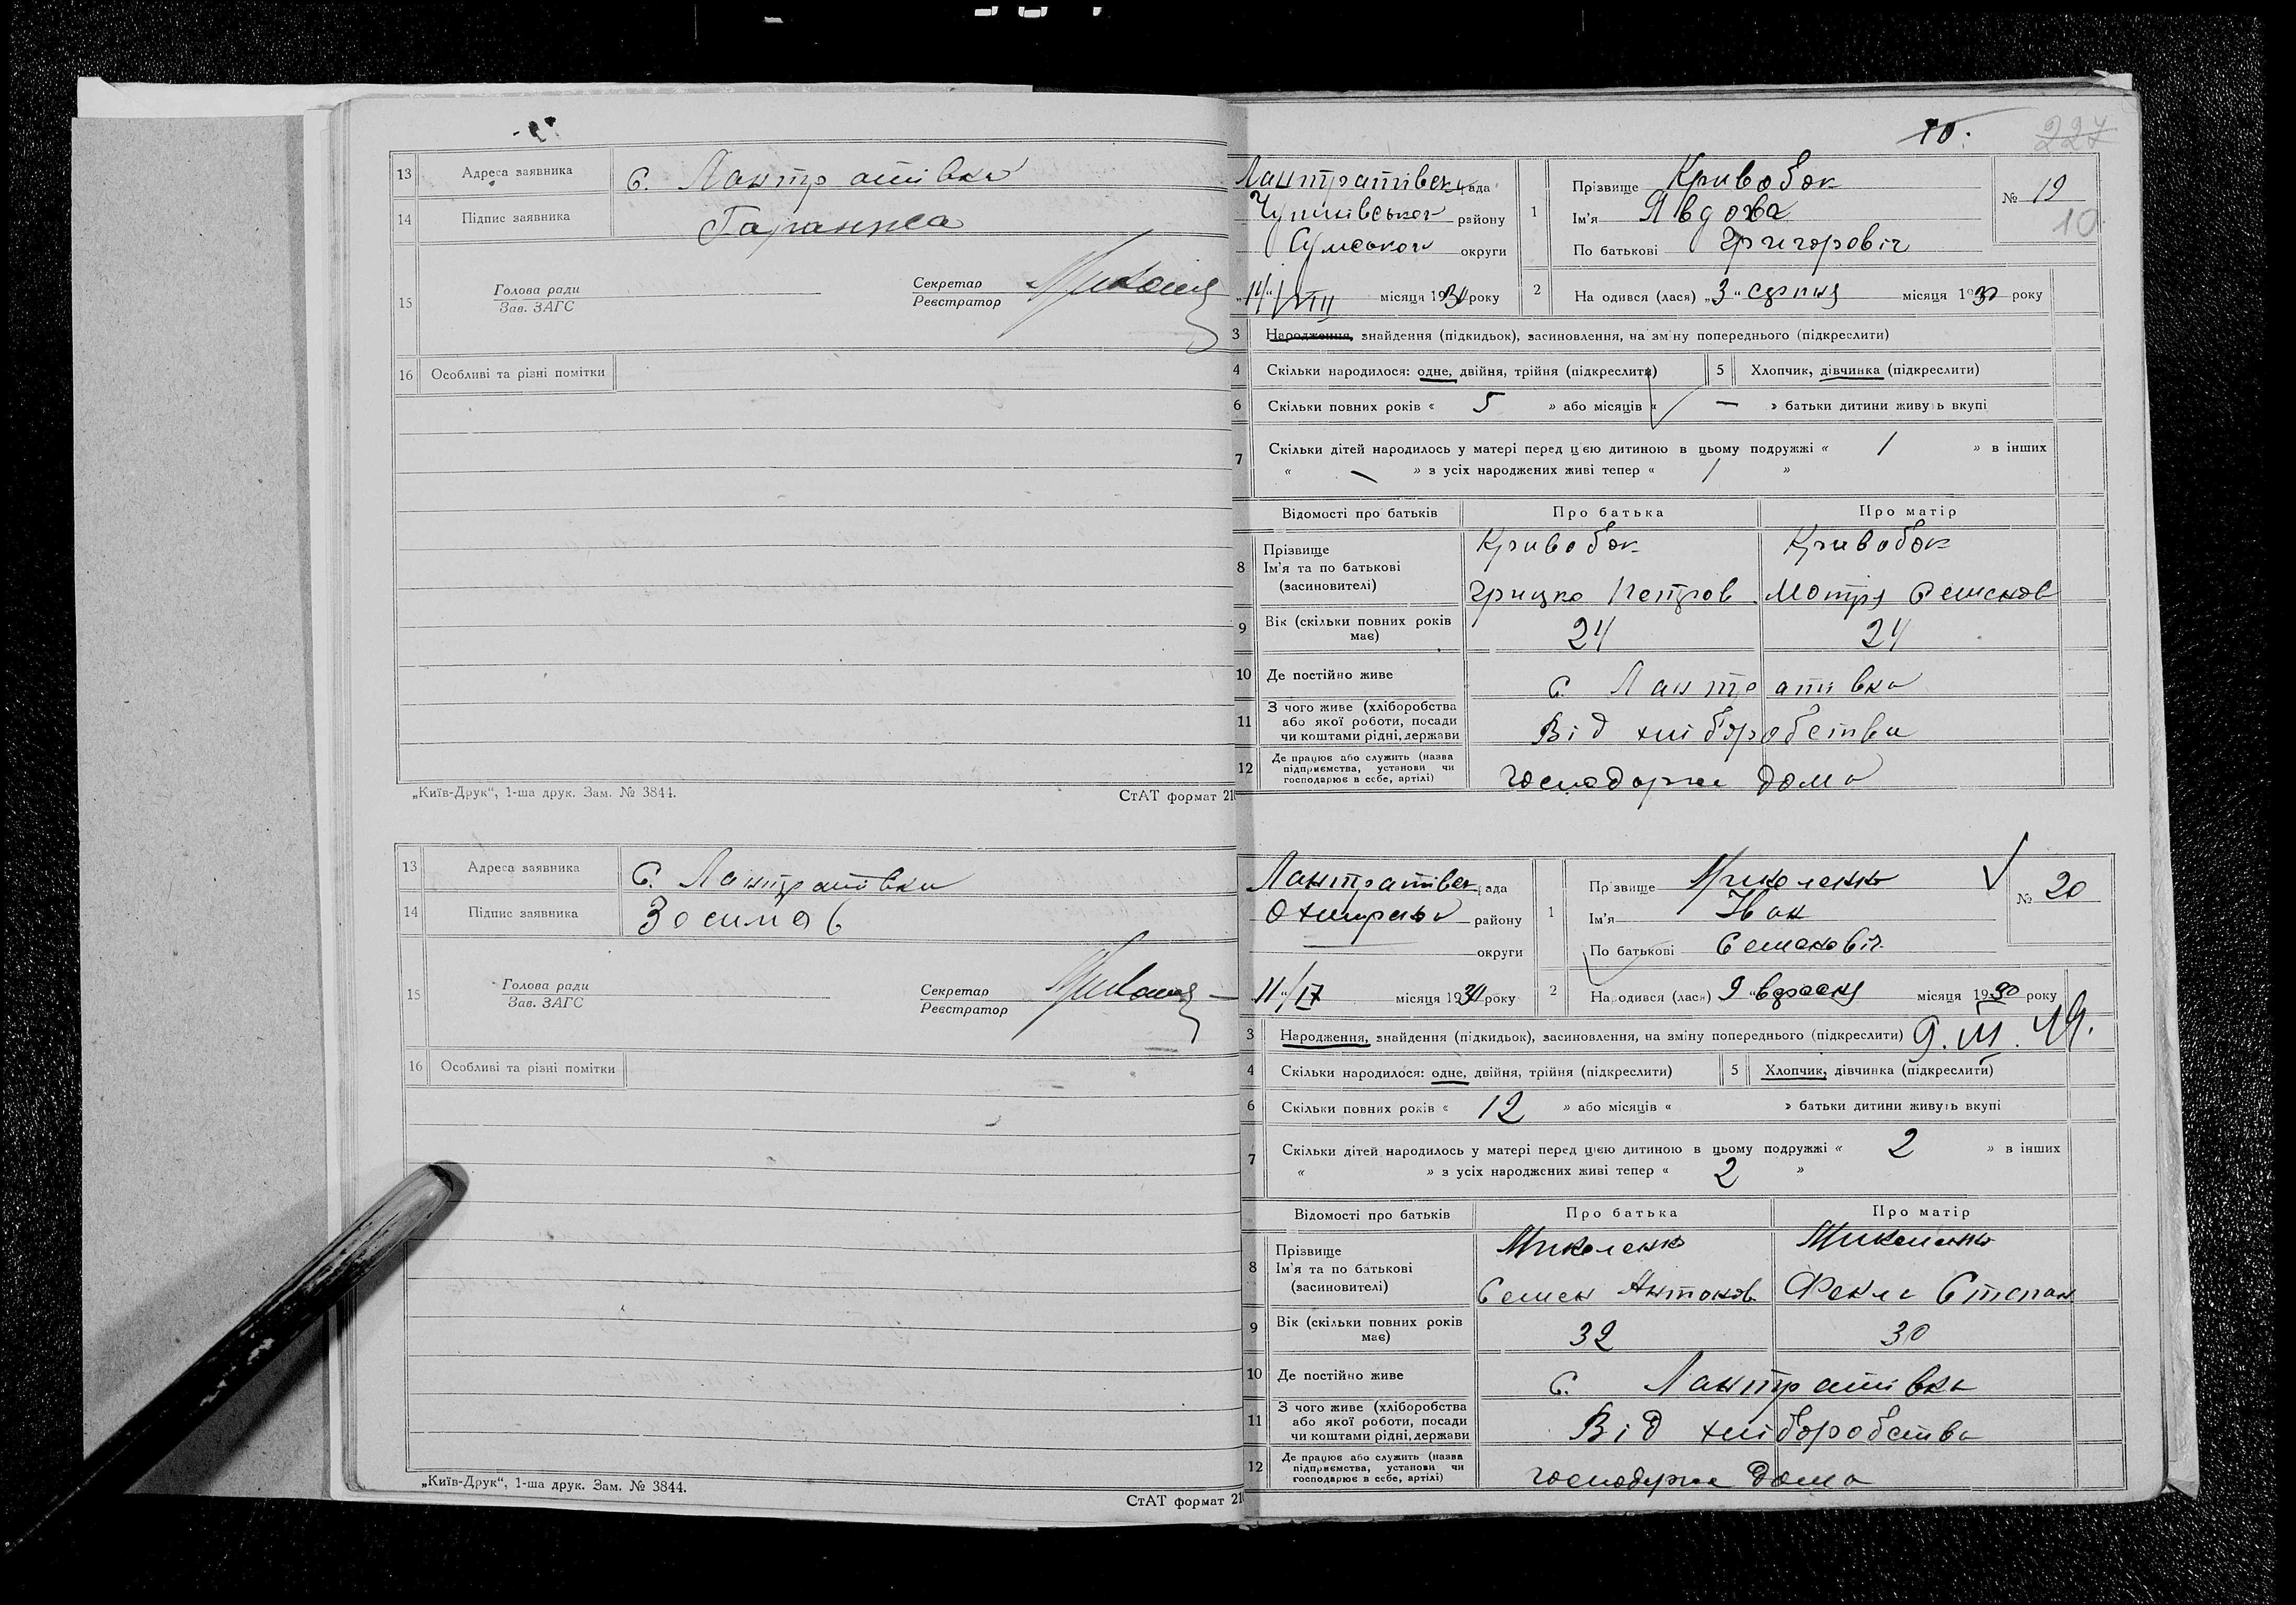 13 Адреса заявника с. Лантратівка
14 Підпис заявника Гаранжа
15 Голова ради
Зав. ЗАГС
Секретар
Реєстратор
16 Особливі та різні помітки
„Київ-Друк“, 1-ша друк. Зам. № 3844.
СтАТ формат 210
13 Адреса заявника С. Лантратівка
14 Підпис заявника Зосимов
15 Голова ради
Зав. ЗАГС
Секретар
Реєстратор
16 Особливі та різні помітки
„Київ-Друк“, 1-ша друк. Зам. № 3844.
СтАТ формат 210
10. 227
Лантратівськ рада
району
Сумської округи
„14“ VIII місяця 1930 року
1 Прізвище Кривобок
Ім'я Явдоха
По батькові Григоровіч
№ 19
10
2 На одився (лася) „3“ серпня місяця 1930 року
3 Народження, знайдення (підкидьок), засиновлення, на зміну попереднього (підкреслити)
4 Скільки народилося: одне, двійня, трійня (підкреслити) 5 Хлопчик, дівчинка (підкреслити)
6 Скільки повних років « 5 » або місяців « — » батьки дитини живуть вкупі
7 Скільки дітей народилось у матері перед цією дитиною в цьому подружжі « 1 » в інших
« — » з усіх народжених живі тепер « 1 »
Відомості про батьків Про батька Про матір
8 Прізвище
Ім'я та по батькові
(засиновителі)
Кривобок Кривобок
Грицко Петров Мотря Семенов
9 Вік (скільки повних років має) 24 24
10 Де постійно живе с. Лантратівка
11 З чого живе (хліборобства
або якої роботи, посади
чи коштами рідні, держави
Від хліборобства
12 Де працює або служить (назва
підприємства, установи чи
господарює в себе, артілі)
господарює дома
Лантратівськ рада
району
округи
11/IX місяця 1930 року
1 Прізвище Миколенко
Ім'я Іван
По батькові Семеновіч
№ 20
2 Народився (лася) 9 “ вересня місяця 1930 року
3 Народження, знайдення (підкидьок), засиновлення, на зміну попереднього (підкреслити)
4 Скільки народилося: одне, двійня, трійня (підкреслити) 5 Хлопчик, дівчинка (підкреслити)
6 Скільки повних років « 12 » або місяців « » батьки дитини живуть вкупі
7 Скільки дітей народилось у матері перед цією дитиною в цьому подружжі « 2 » в інших
« » з усіх народжених живі тепер « 2 »
Відомості про батьків Про батька Про матір
8 Прізвище
Ім'я та по батькові
(засиновителі)
Миколенко Миколенко
Семен Антонов Фекла Степан
9 Вік (скільки повних років має) 32 30
10 Де постійно живе с. Лантратівка
11 З чого живе (хліборобства
або якої роботи, посади
чи коштами рідні, держави
Від хліборобства
12 Де працює або служить (назва
підприємства, установи чи
господарює в себе, артілі)
господарює дома